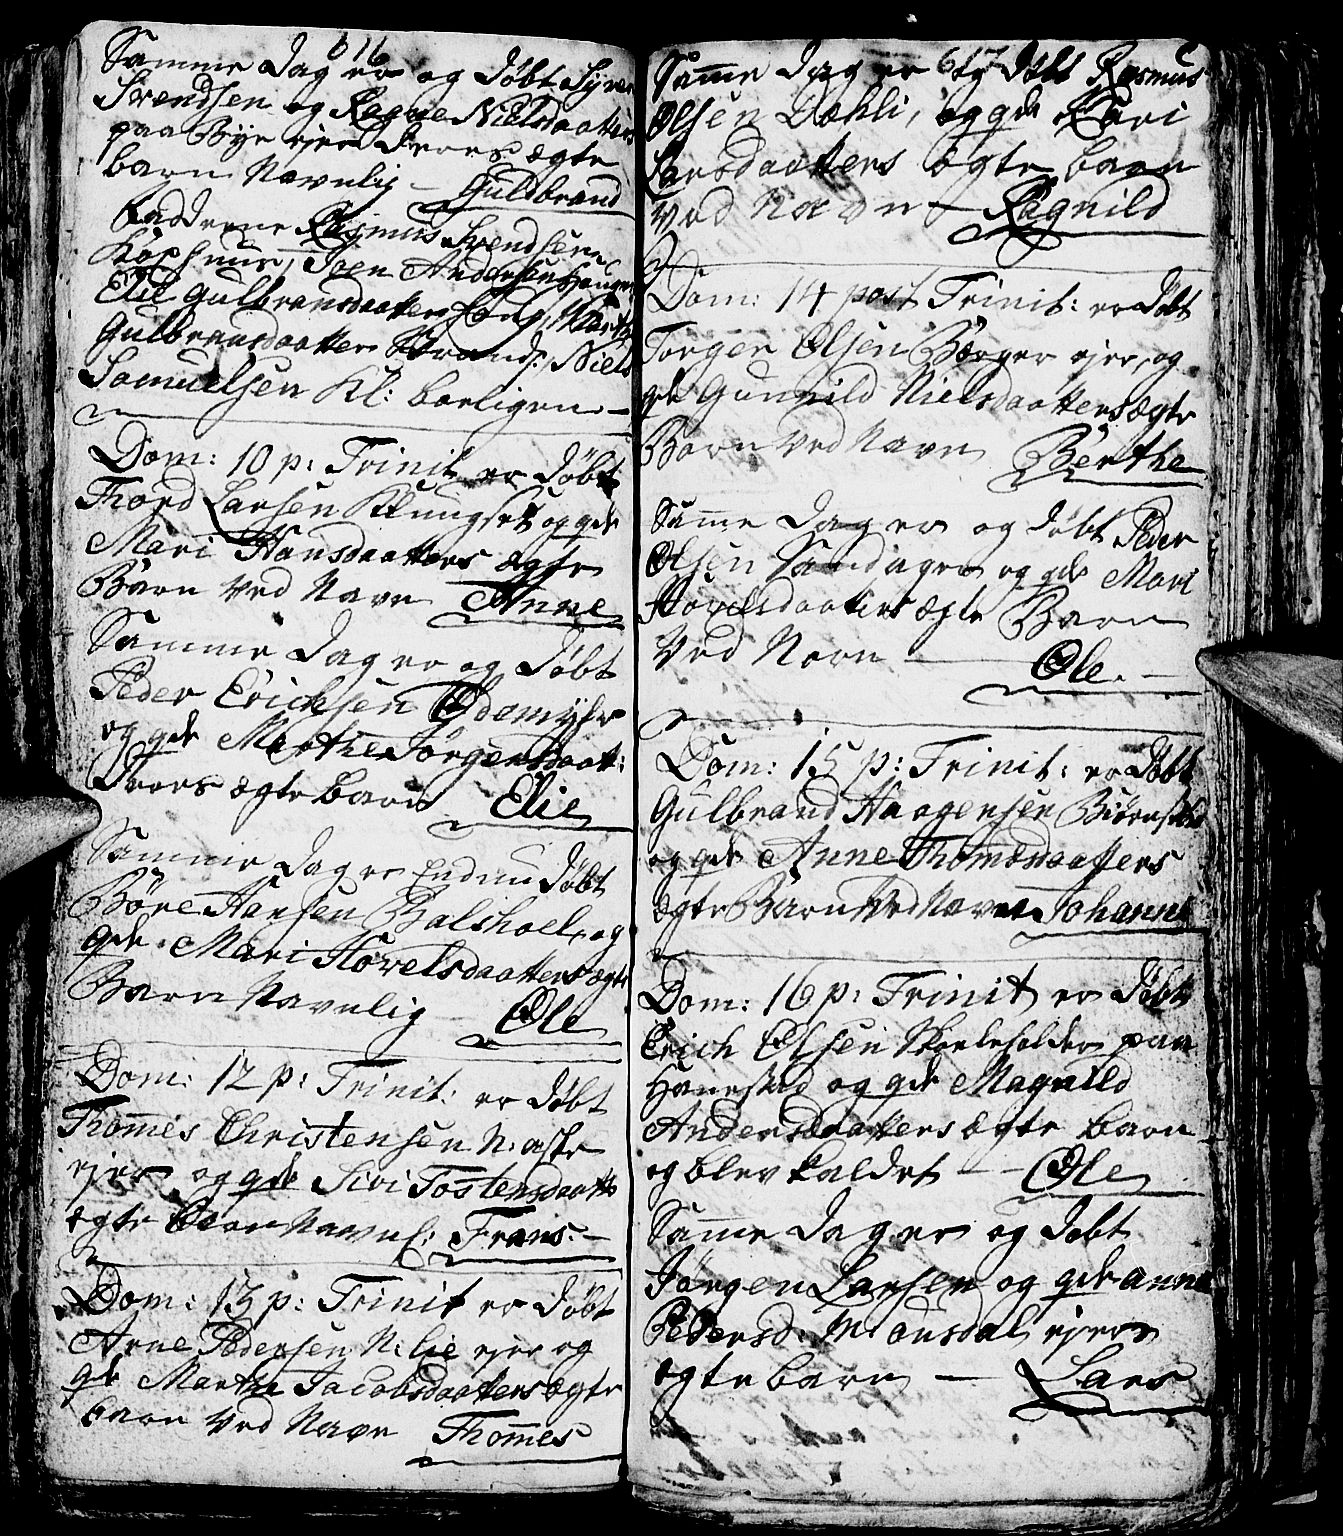 616
Samme dag er og døbt Syver
Svendsen og Ragne Nielsdaatters
paa Bye ejer deres ægte
barn Navnlig — Guldbrand
fadderne Rasmus Svendsen
Joen Andersen Hougen
Elie Gulbransdaatter Houg,
Gulbransdaatter Strand: Niels
Samuelsen Kl: boeligen —
Dom: 10 p: Trinit er døbt
Thord Larsen Klungset og gde
Mari Hansdaatters ægte
Barn Ved Navn Anne
Samme dag er og døbt
Peder Erichsen Ødemyhr
og gde Marthe Jørgensdaat:
Deres ægte barn Elie
Samme dag er Endnu døbt
Børe Hansen Balshoel, og
gde Mari Hovelsdaatters ægte
Barn Navnlig Ole
Dom: 12 p: Trinit: er døbt
Thomes Christensen N: aste
ejer og gde Sivi Tostensdaatt
ægte Barn Navnl: Frans. —
Dom: 13 p: Trinit er døbt
Arne Pedersen N: Lie ejer og
gde Marthe Jacobsdaatters ægte
barn Ved Navn Thomes
617
Samme dag er og døbt Rasmus
Olsen Dæhli, og gde Kari
Larsdaatters ægte barn
ved Navn — Ragnild
Dom: 14 post Trinit: er døbt
Torger Olsen Berger ejer, og
gde Gunnild Nielsdaatters ægte
Barn Ved Navn Berthe
Samme dag er og døbt Peder
Olsen Sandager og gde Mari
Hovelsdaatters ægte Barn
Ved Navn — Ole. —
Dom: 15 p: Trinit: er døbt
Gulbrand Haagensen
og gde Anne Thomesdaatters
ægte Barn Ved Navn Johanne
Dom: 16 p: Trinit er døbt
Erich Olsen Skoleholder paa
Hanestad og gde Magnild
Andersdaatters ægte barn
og blev kaldet — Ole
Samme dag er og døbt
Jørgen Larsen og gde Anne
Pedersd. Monsdal ejer
ægte barn — Lars